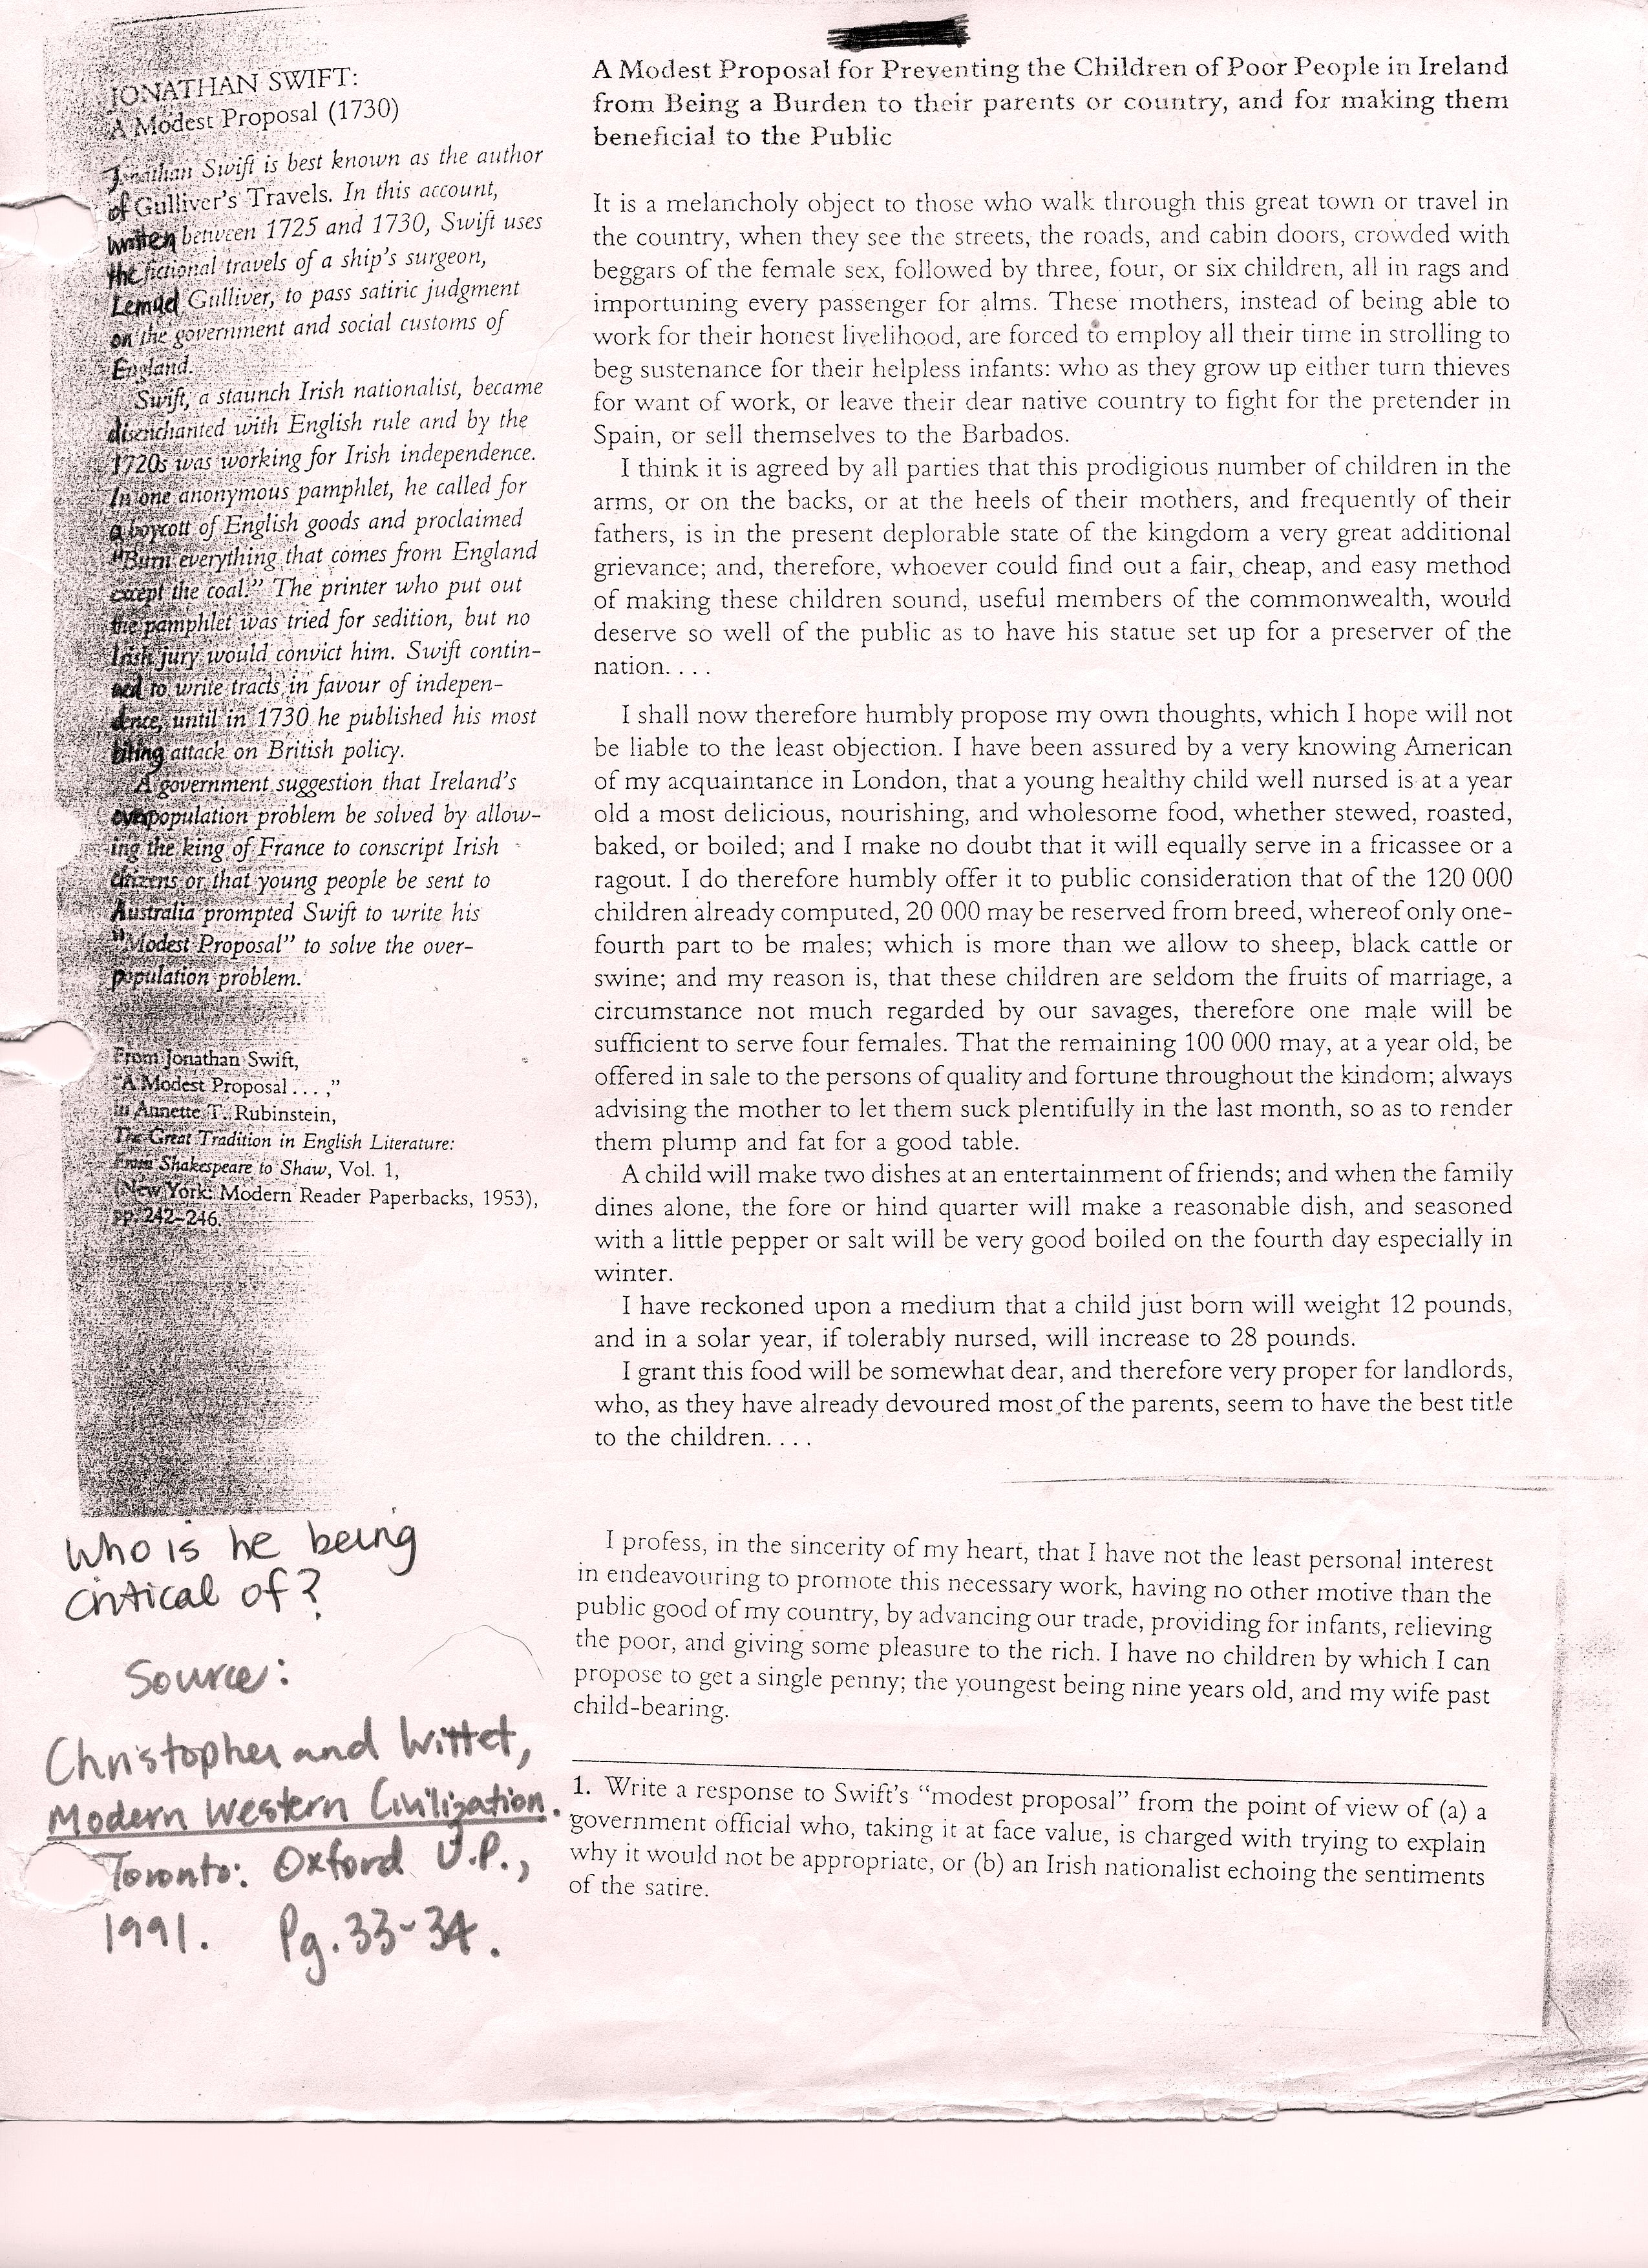 JONATHAN SWIFT:
A Modest Proposal (1730)
Jonathan Swift is best known as the author
of Gulliver's Travels. In this account,
written between 1725 and 1730, Swift uses
the fictional travels of a ship's surgeon,
Lemuel Gulliver, to pass satiric judgment
on the government and social customs of
England.
Swift, a staunch Irish nationalist, became
disenchanted with English rule and by the
1720s was working for Irish independence.
In one anonymous pamphlet, he called for
a boycott of English goods and proclaimed
"Burn everything that comes from England
except the coal." The printer who put out
the pamphlet was tried for sedition, but no
Irish jury would convict him. Swift contin-
ued to write tracts in favour of indepen-
dence, until in 1730 he published his most
biting attack on British policy.
A government suggestion that Ireland's
overpopulation problem be solved by allow-
ing the king of France to conscript Irish
citizens or that young people be sent to
Australia prompted Swift to write his
"Modest Proposal" to solve the over-
population problem.
From Jonathan Swift,
"A Modest Proposal . . . ,"
in Annette T. Rubinstein,
The Great Tradition in English Literature:
From Shakespeare to Shaw, Vol. 1,
(New York: Modern Reader Paperbacks, 1953),
pp. 242–246.
Who is he being
critical of?
Source:
Christopher and Wittet,
Modern Western Civilization.
Toronto: Oxford U.P.,
1991. Pg. 33-34.
A Modest Proposal for Preventing the Children of Poor People in Ireland
from Being a Burden to their parents or country, and for making them
beneficial to the Public
It is a melancholy object to those who walk through this great town or travel in
the country, when they see the streets, the roads, and cabin doors, crowded with
beggars of the female sex, followed by three, four, or six children, all in rags and
importuning every passenger for alms. These mothers, instead of being able to
work for their honest livelihood, are forced to employ all their time in strolling to
beg sustenance for their helpless infants: who as they grow up either turn thieves
for want of work, or leave their dear native country to fight for the pretender in
Spain, or sell themselves to the Barbados.
I think it is agreed by all parties that this prodigious number of children in the
arms, or on the backs, or at the heels of their mothers, and frequently of their
fathers, is in the present deplorable state of the kingdom a very great additional
grievance; and, therefore, whoever could find out a fair, cheap, and easy method
of making these children sound, useful members of the commonwealth, would
deserve so well of the public as to have his statue set up for a preserver of the
nation. . . .
I shall now therefore humbly propose my own thoughts, which I hope will not
be liable to the least objection. I have been assured by a very knowing American
of my acquaintance in London, that a young healthy child well nursed is at a year
old a most delicious, nourishing, and wholesome food, whether stewed, roasted,
baked, or boiled; and I make no doubt that it will equally serve in a fricassee or a
ragout. I do therefore humbly offer it to public consideration that of the 120 000
children already computed, 20 000 may be reserved from breed, whereof only one-
fourth part to be males; which is more than we allow to sheep, black cattle or
swine; and my reason is, that these children are seldom the fruits of marriage, a
circumstance not much regarded by our savages, therefore one male will be
sufficient to serve four females. That the remaining 100 000 may, at a year old, be
offered in sale to the persons of quality and fortune throughout the kindom; always
advising the mother to let them suck plentifully in the last month, so as to render
them plump and fat for a good table.
A child will make two dishes at an entertainment of friends; and when the family
dines alone, the fore or hind quarter will make a reasonable dish, and seasoned
with a little pepper or salt will be very good boiled on the fourth day especially in
winter.
I have reckoned upon a medium that a child just born will weight 12 pounds,
and in a solar year, if tolerably nursed, will increase to 28 pounds.
I grant this food will be somewhat dear, and therefore very proper for landlords,
who, as they have already devoured most of the parents, seem to have the best title
to the children. . . .
I profess, in the sincerity of my heart, that I have not the least personal interest
in endeavouring to promote this necessary work, having no other motive than the
public good of my country, by advancing our trade, providing for infants, relieving
the poor, and giving some pleasure to the rich. I have no children by which I can
propose to get a single penny; the youngest being nine years old, and my wife past
child-bearing.
1. Write a response to Swift's "modest proposal" from the point of view of (a) a
government official who, taking it at face value, is charged with trying to explain
why it would not be appropriate, or (b) an Irish nationalist echoing the sentiments
of the satire.